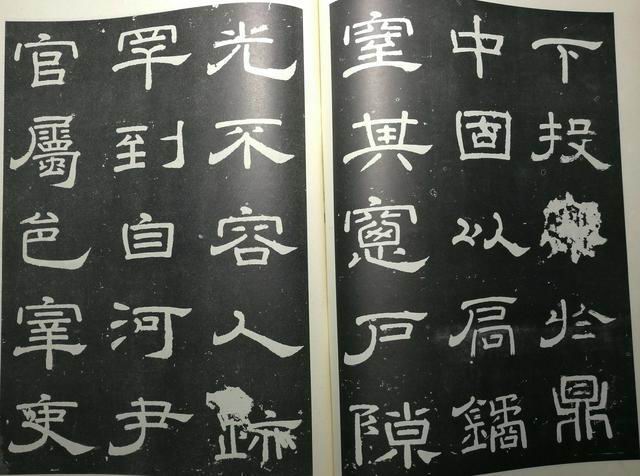 下投於鼎
中固以扃鐍
窒其窻戶隙
光不容人跡
罕到自河尹
官屬邑宰吏